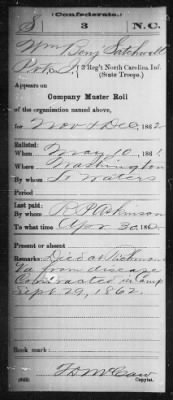 Confederate.
S 3 N.C.
Wm Benj Satchwell
Pvt, Co. I, 3 Reg't North Carolina Inf.
(State Troops.)
Appears on
Company Muster Roll
of the organization named above,
for Nov & Dec, 1862.
Enlisted:
When May 10, 1861.
Where Washington
By whom
Period
Last paid:
By whom R P Atkinson
To what time Apr 30, 1862.
Present or absent
Remarks: Died at Richmond
Va from disease
Contracted in Camp
Sept 29, 1862.
Book mark:
Copyist.